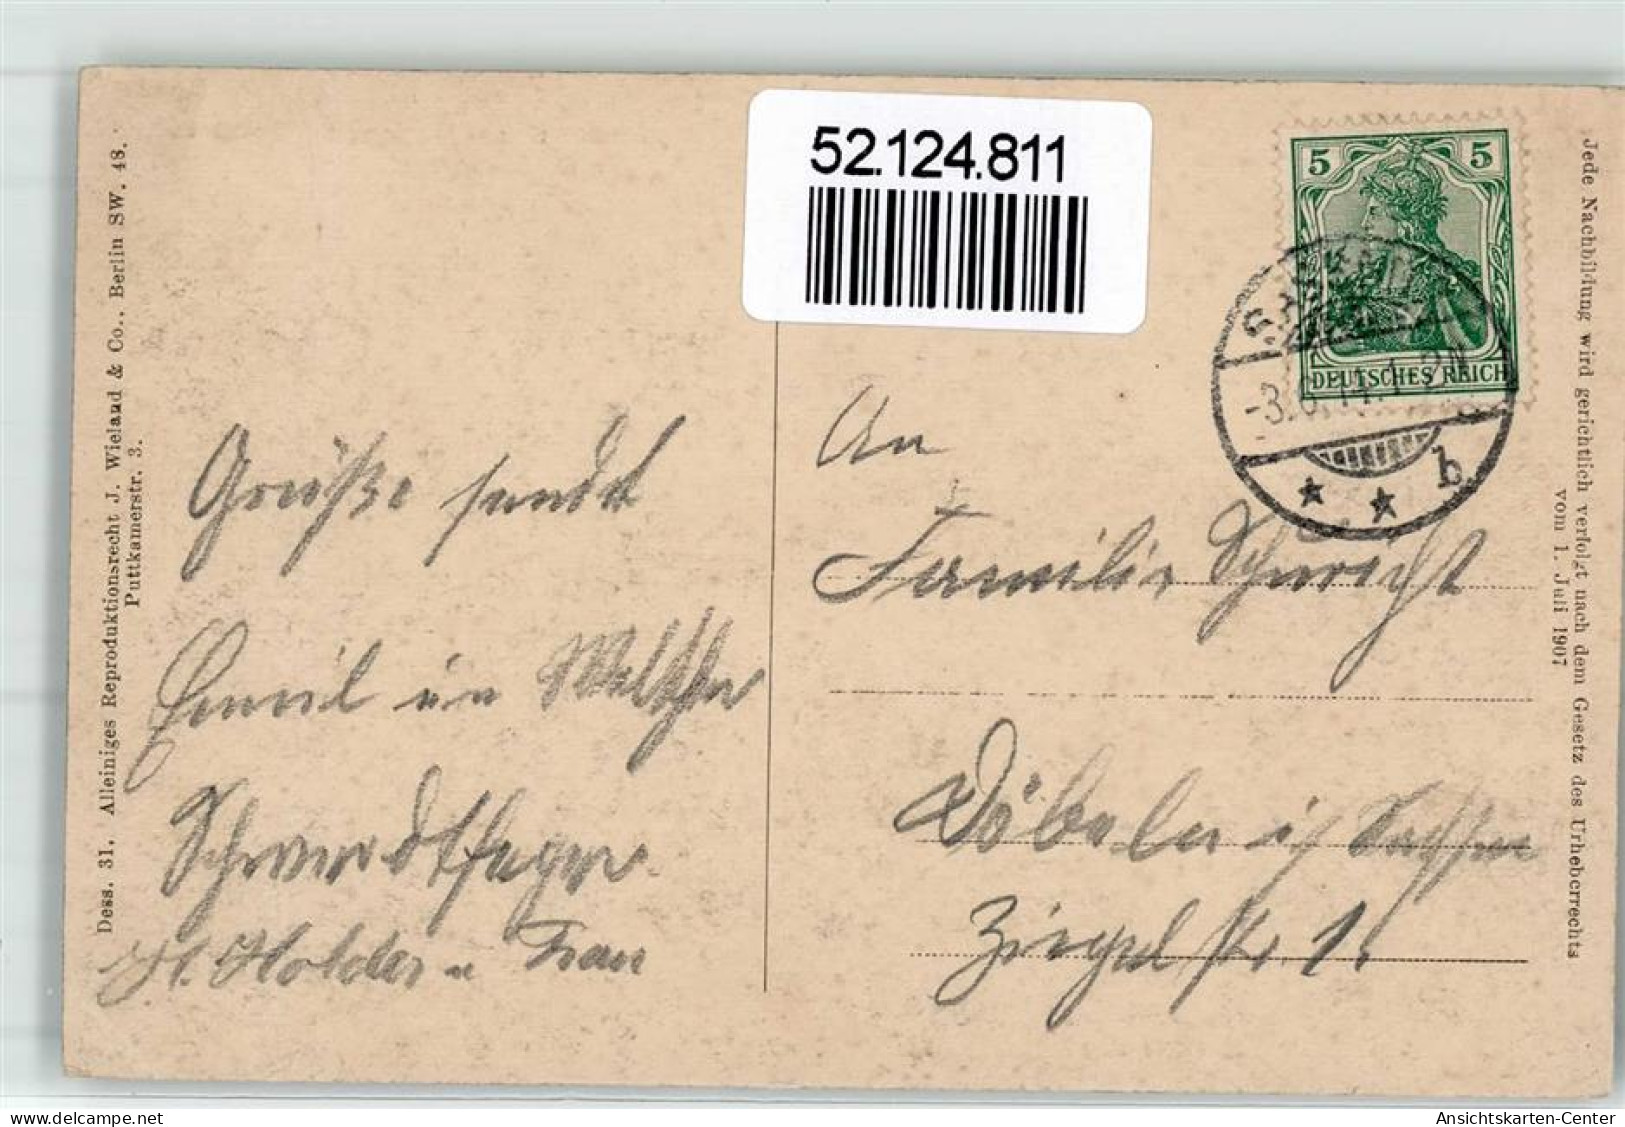 52.124.811
5 5
DEUTSCHES REICH
b
Dess. 31. Alleiniges Reproduktionsrecht J. Wieland & Co., Berlin SW. 48.
Puttkamerstr. 3.
Jede Nachbildung wird gerichtlich verfolgt nach dem Gesetz des Urheberrechts
vom 1. Juli 1907
Grüße sendet
Emil
Schwerdtfeger
Holder u Frau
An
Familie
Döbeln i/ Sachsen
Ziegel Str. 1.
www.delcampe.net
Ansichtskarten-Center